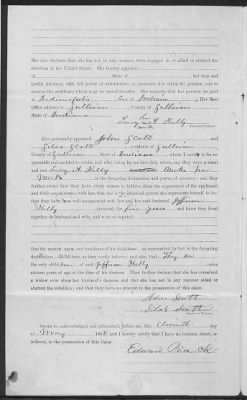 She also declares that she has not, in any manner, been engaged in, or aided or abetted the
rebellion in the United States. She hereby appoints
of State of her true and
lawful Attorney, with full power of substitution, to prosecute this claim for pension, and to
receive the certificate which may be issued therefor. She requests that her pension be paid
at Indianapolis State of Indiana. Her Post
Office address is Sullivan County of Sullivan
State of Indiana
her
Lucy A Kelly
mark
Also personally appeared John Scott and
Silas Scott residents of Sullivan
County of Sullivan State of Indiana
and credited, and who, being by me duly sworn, say they were present
and saw Lucy A. Kelly make her
Mark to the foregoing declaration and power of attorney; and they
further swear that they have every reason to believe, from the appearance of the applicant
and their acquaintance with her, that she is the identical person she represents herself to be;
that they have been well acquainted with her and her said husband Jefferson
Kelly deceased, for five years and knew they lived
together as husband and wife, and were so reputed;
that the names, ages, and residence of his children, as represented by her in the foregoing
They are
the only children of Jefferson Kelly under
sixteen years of age at the time of his decease. They further declare that she has remained
a widow ever since her husband's decease; and that she has not in any manner aided or
abetted the rebellion; and that they have no interest in the prosecution of this claim.
John Scott
Silas Scott
Sworn to, acknowledged and subscribed before me, this Eleventh day
of May and I hereby certify that I have no interest, direct or
indirect, in the prosecution of this claim.
Edward Price Ck